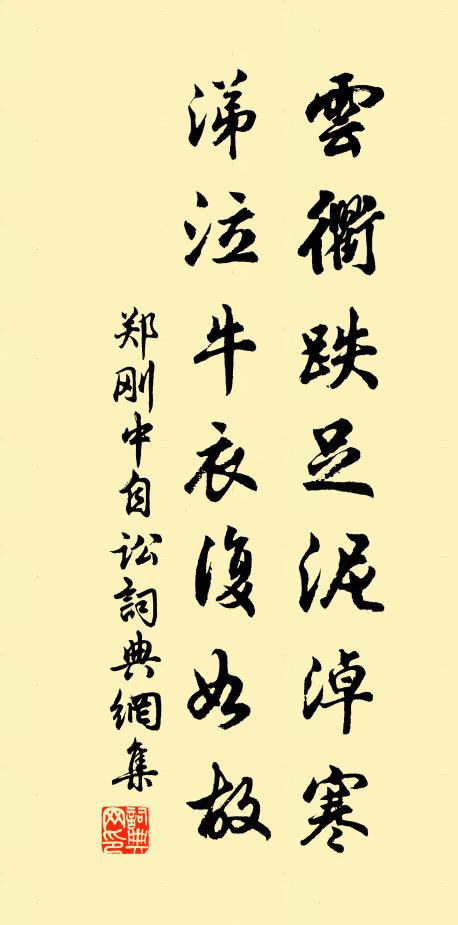 雲衢跌足泥淖寒
涕泣牛衣復如故
郑刚中自讼詞典網集
詞典网印